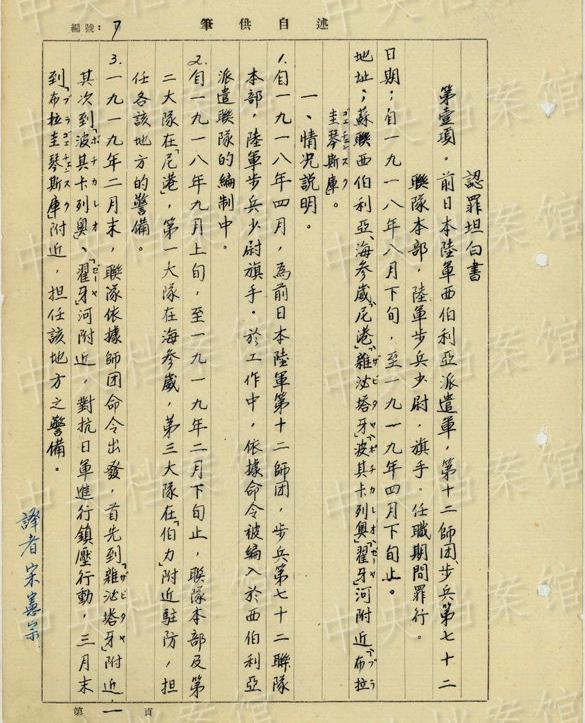 編號：7
述自供筆
認罪坦白書
第壹項。前日本陸軍西伯利亞派遣軍，第十二師团步兵第七十二
聯隊本部，陸軍步兵少尉，旗手。任職期間罪行。
日期；自一九一八年八月下旬，至一九一九年四月下旬止。
地址；蘇聯西伯利亞，海參崴，尼港，「雜波塔牙」，「波其卡列奧」，「翟牙」河附近，布拉
圭琴斯庫。
一、情況説明。
1.自一九一八年四月，為前日本陸軍第十二師团，步兵第七十二聯隊
本部，陸軍步兵少尉旗手。於工作中，依據命令被編入於西伯利亞
派遣聯隊的編制中。
2.自一九一八年九月上旬，至一九一九年二月下旬止，聯隊本部及第
二大隊在「尼港」，第一大隊在海參崴，第三大隊在「伯力」附近駐防，担
任各該地方的警備。
3.一九一九年二月末，聯隊依據師团命令出發，首先到「雜波塔牙」附近，
其次到「波其卡列奧」、「翟牙」河附近，對抗日軍進行鎮壓行動，三月末
到「布拉圭琴斯庫」附近，担任該地方之警備。
譯者 宋憲宗
第一頁